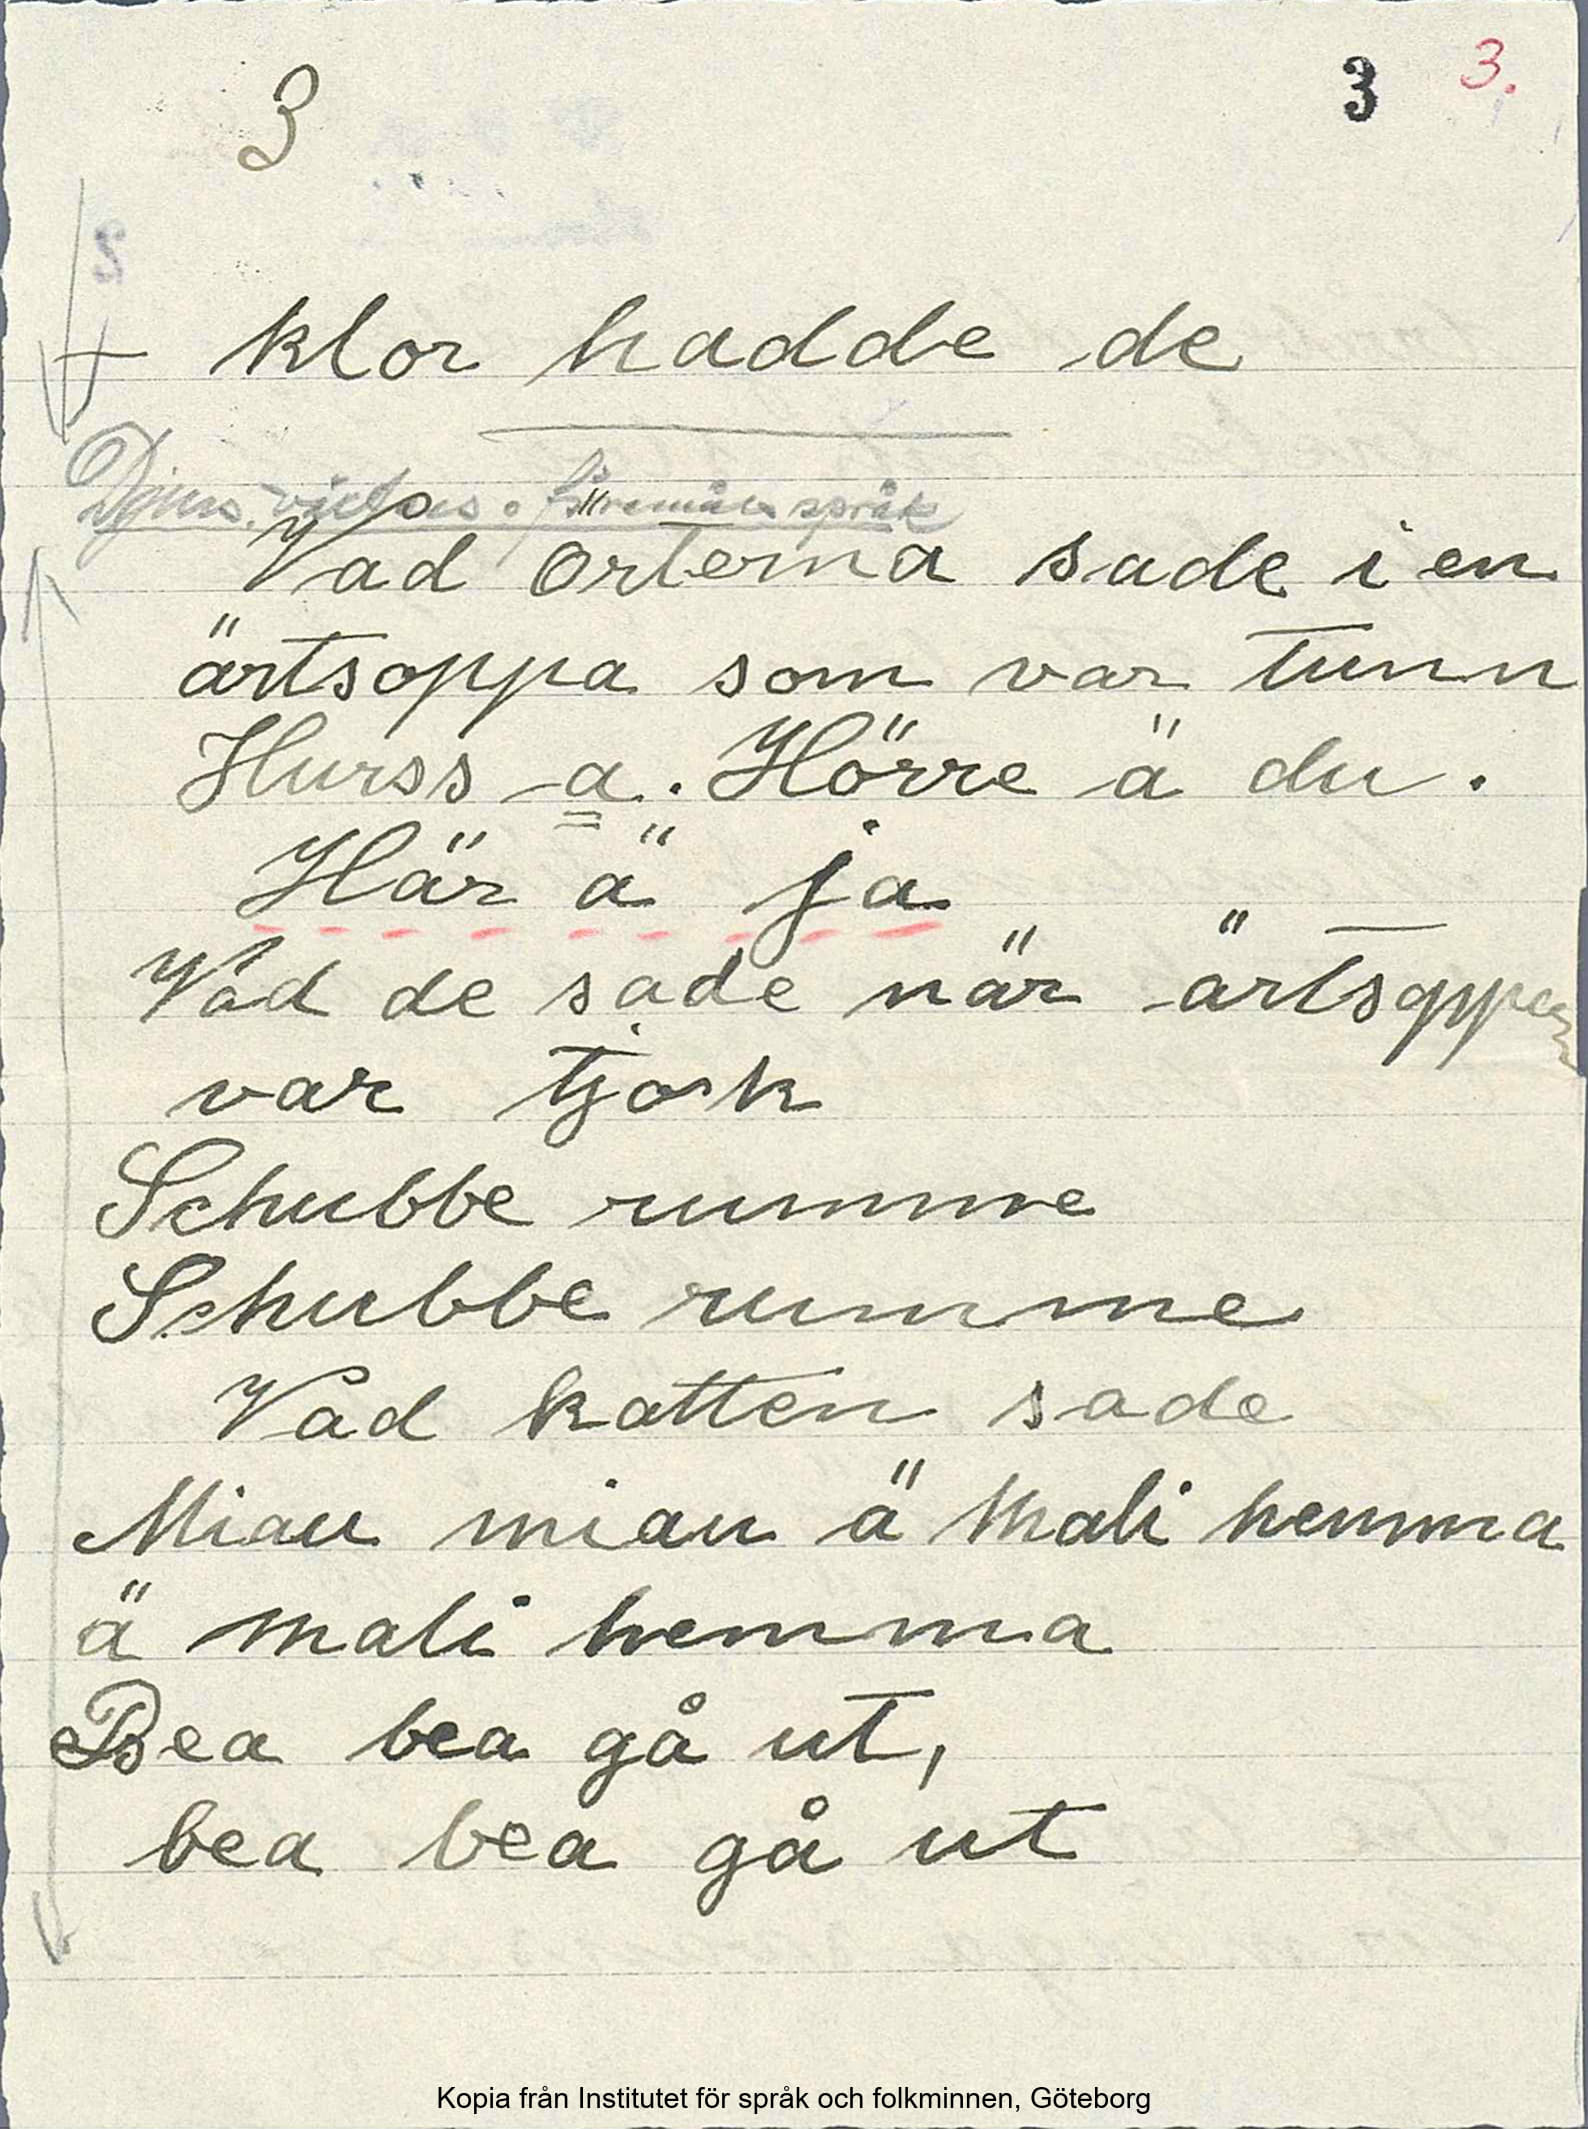 3 3 3.
klor hadde de
Djurs, växters o. föremåls språk
Vad örterna sade i en
ärtsoppa som var tunn
Hurss a. Hörre ä du.
Här ä ja
Vad de sade när ärtsoppan
var tjock
Schubbe rumme
Schubbe rumme
Vad katten sade
Miau miau ä Mali hemma
ä Mali hemma
Bea bea gå ut,
bea bea gå ut
Kopia från Institutet för språk och folkminnen, Göteborg